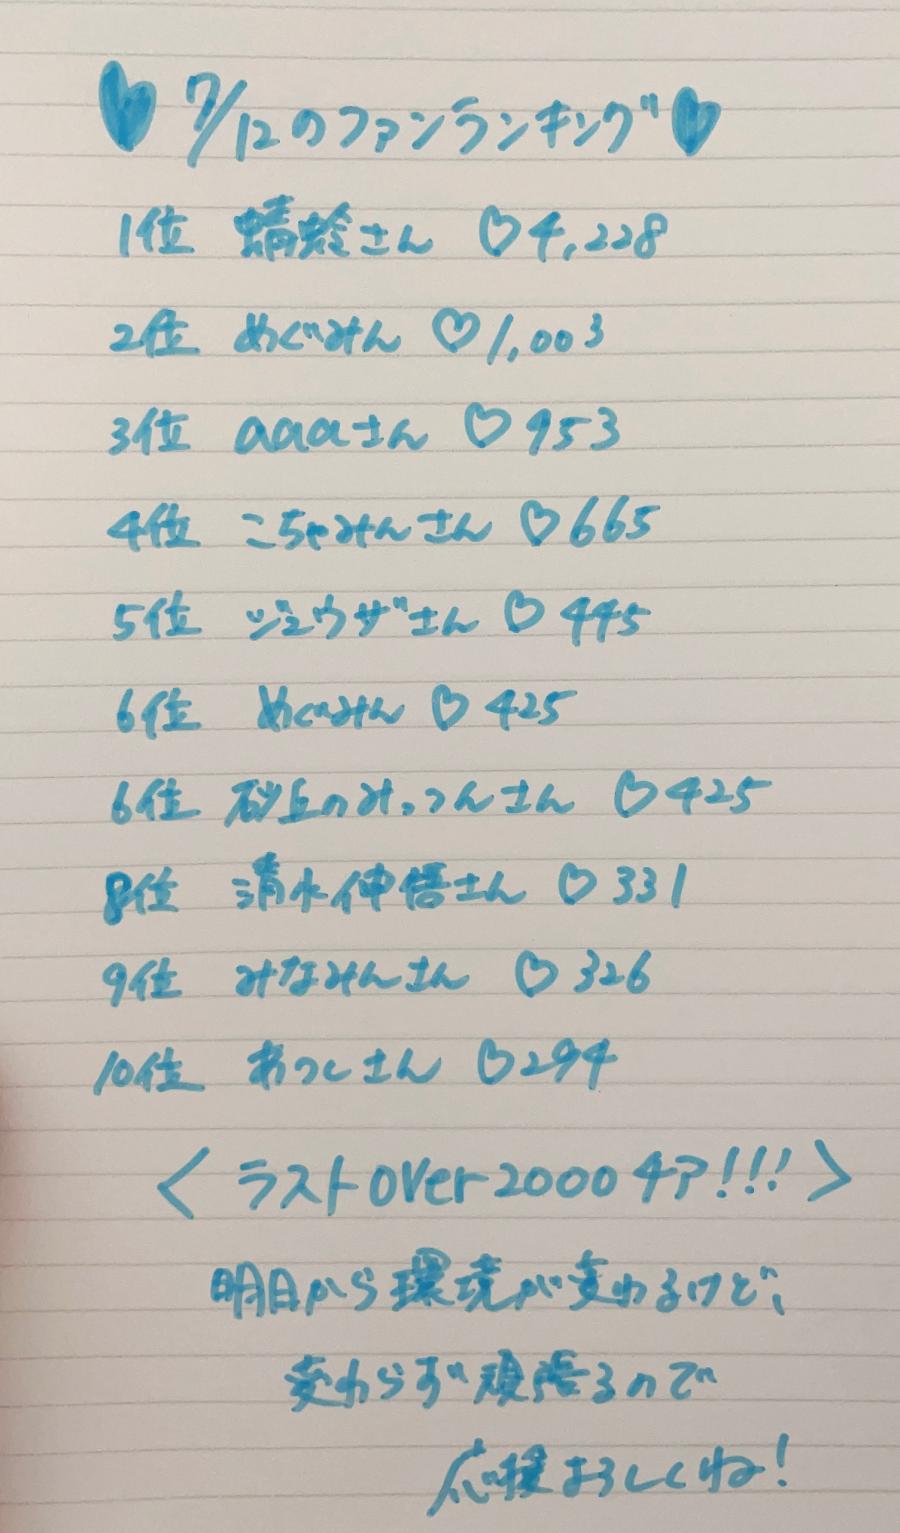 ♥7/12のファンランキング♥
1位 蜻蛉さん ♡4,228
2位 めぐみん ♡1,003
3位 aaaさん ♡953
4位 こちゃみんさん ♡665
5位 ジュウザさん ♡445
6位 めぐみん ♡425
6位 砂丘のみっつんさん ♡425
8位 清水伸悟さん ♡331
9位 みなみんさん ♡326
10位 あつしさん ♡294
＜ラストover2000チア!!!＞
明日から環境が変わるけど、
変わらず頑張るので
応援よろしくね!